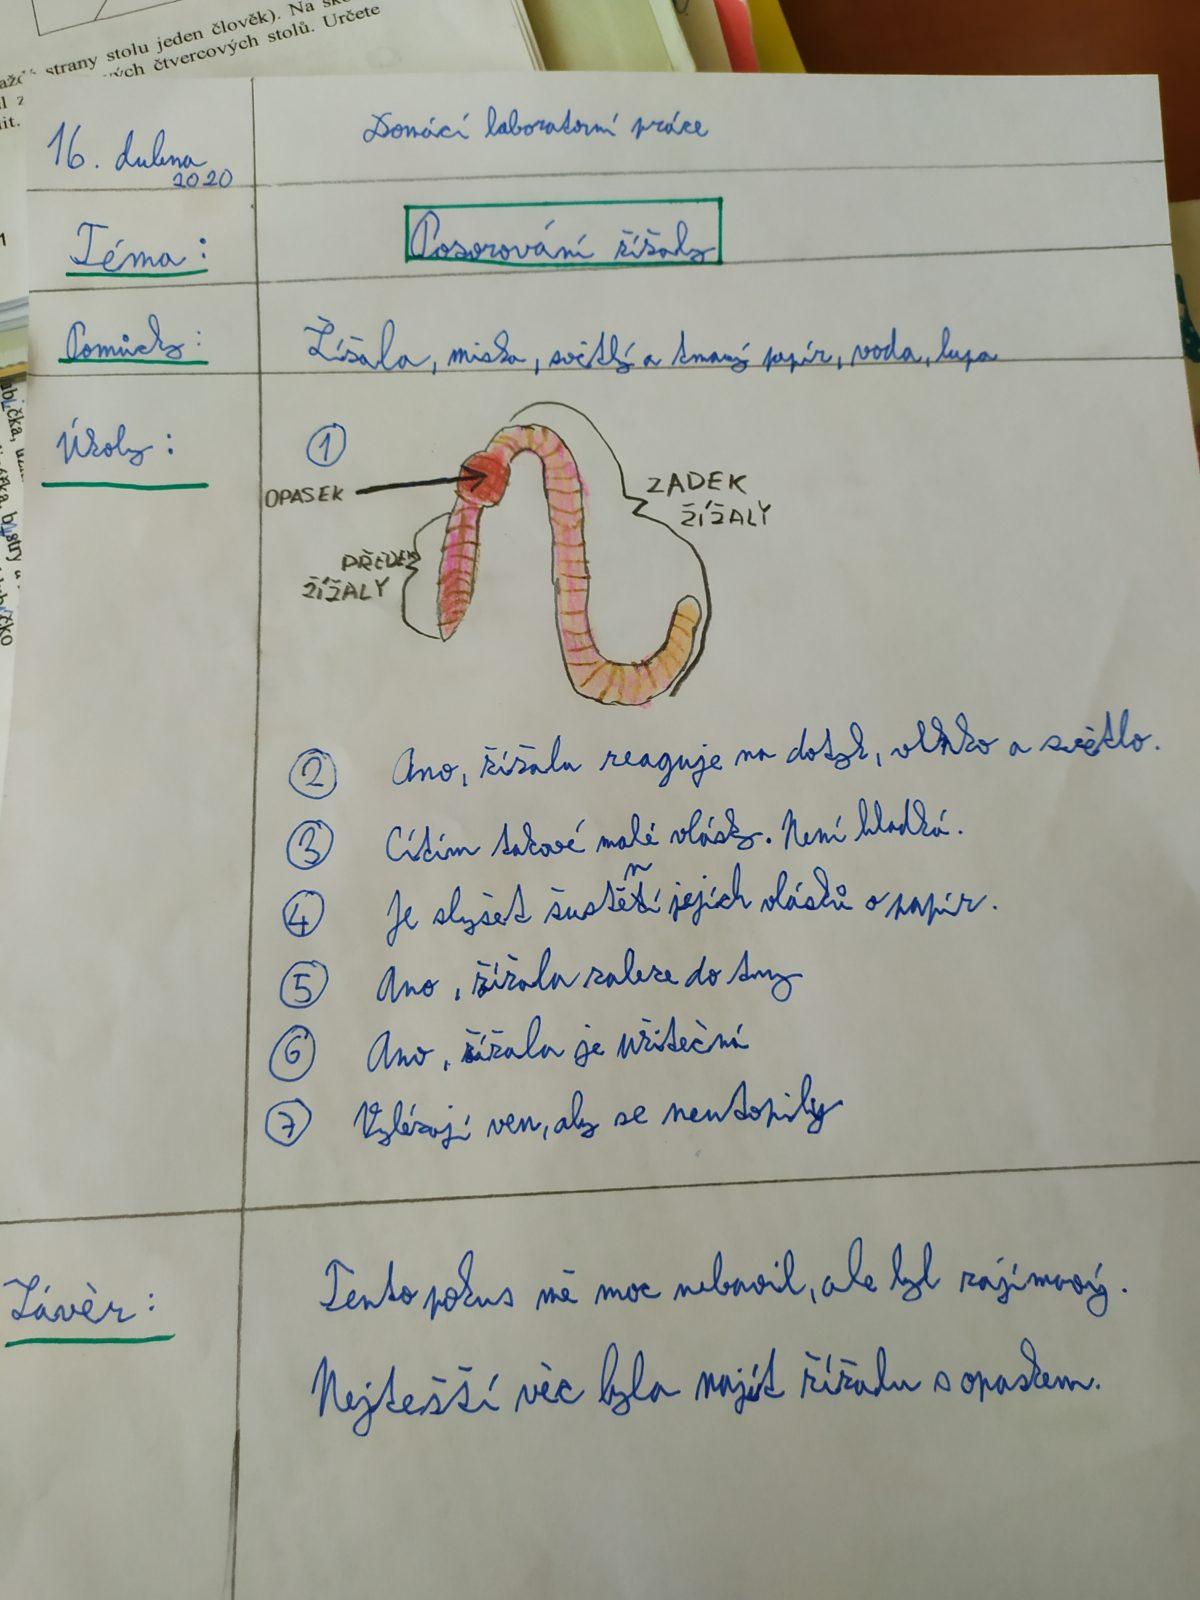 strany stolu jeden člověk). Na
čtvercových stolů. Určete
lit.
16. dubna
2020
Domácí laboratorní práce
Téma:
Pozorování žížaly
Pomůcky:
Žížala, miska, světlý a tmavý papír, voda, lupa
Úkoly:
1
OPASEK
ZADEK
ŽÍŽALY
PŘEDEK
ŽÍŽALY
2 Ano, žížala reaguje na dotyk, vlhko a světlo.
3 Cítím takové malé vlásky. Není hladká.
4 Je slyšet šustění jejích vlásků o papír.
5 Ano, žížala zaleze do tmy
6 Ano, žížala je užitečná
7 Vylézají ven, aby se neutopily
Závěr:
Tento pokus mě moc nebavil, ale byl zajímavý.
Nejtešší věc byla najít žížalu s opaskem.